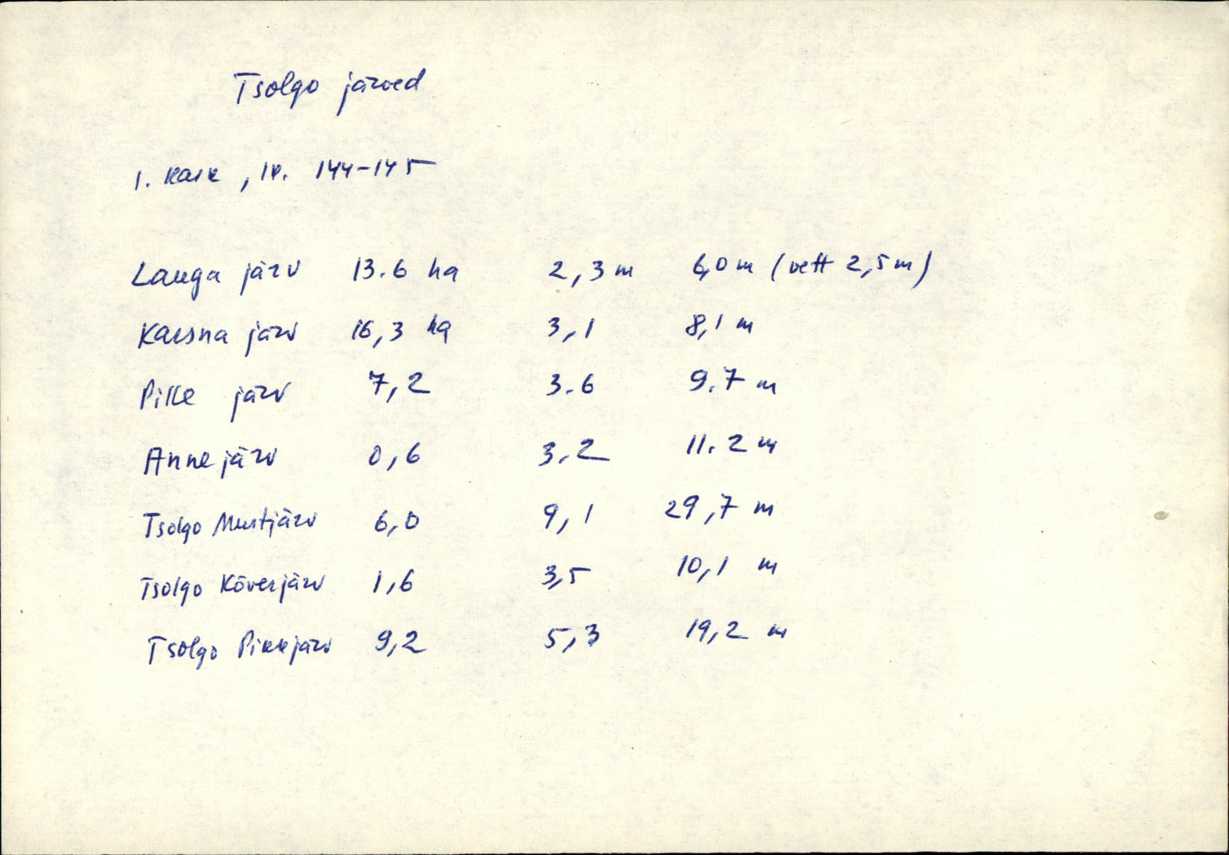 Tsolgo järved
I. Kask, lk. 144-145
Lauga järv 13.6 ha 2,3 m 6,0 m (vett 2,5 m)
Karsna järv 16,3 ha 3,1 8,1 m
Pille järv 7,2 3.6 9.7 m
Anne järv 0,6 3.2 11.2 m
Tsolgo Mustjärv 6,0 9,1 29,7 m
Tsolgo Kõverjärv 1,6 3,5 10,1 m
Tsolgo Pikkjärv 9,2 5,3 19,2 m